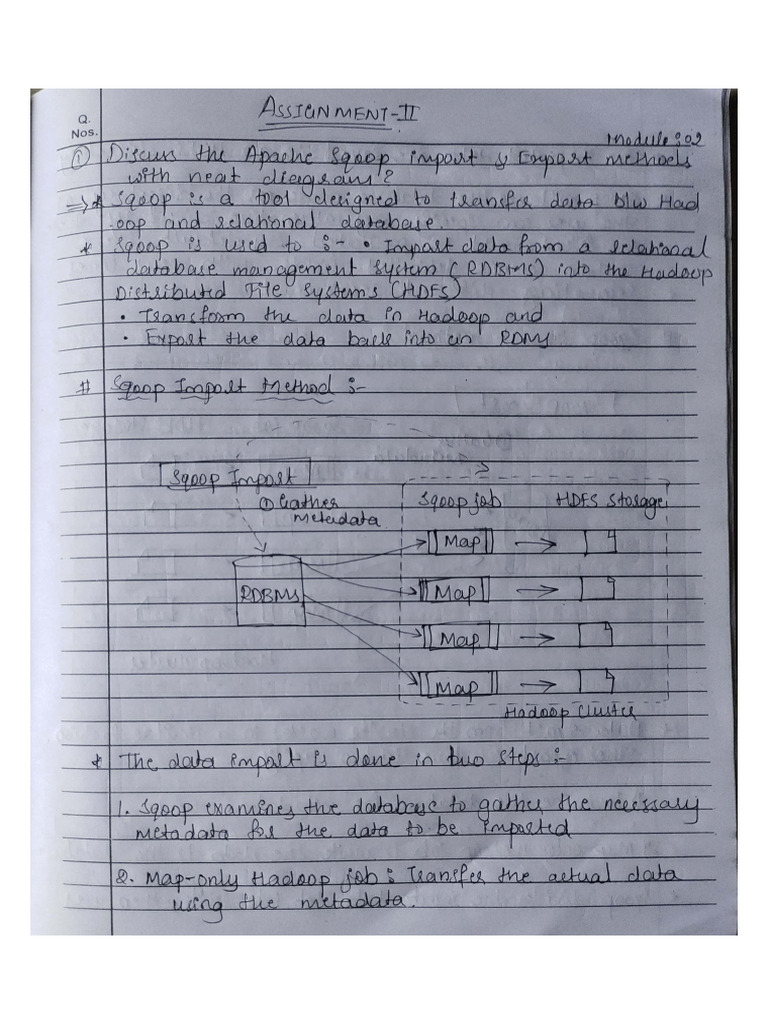 ASSIGNMENT-II
Q.
Nos.
Module 302
① Discuss the Apache Sqoop import & Export methods
with neat diagram?
⇒ * Sqoop is a tool designed to transfer data b/w Had
oop and relational database.
* Sqoop is used to :- • Import data from a relational
database management system (RDBMS) into the Hadoop
Distributed File Systems (HDFS)
• Transform the data in Hadoop and
• Export the data back into an RDMS
# Sqoop Import Method :-
Sqoop Import
① Gather
metadata
Sqoop job HDFS Storage
Map
RDBMS
Map
Map
Map
Hadoop Cluster
* The data import is done in two steps :-
1. Sqoop examines the database to gather the necessary
metadata for the data to be imported
2. Map-only Hadoop job : Transfer the actual data
using the metadata.